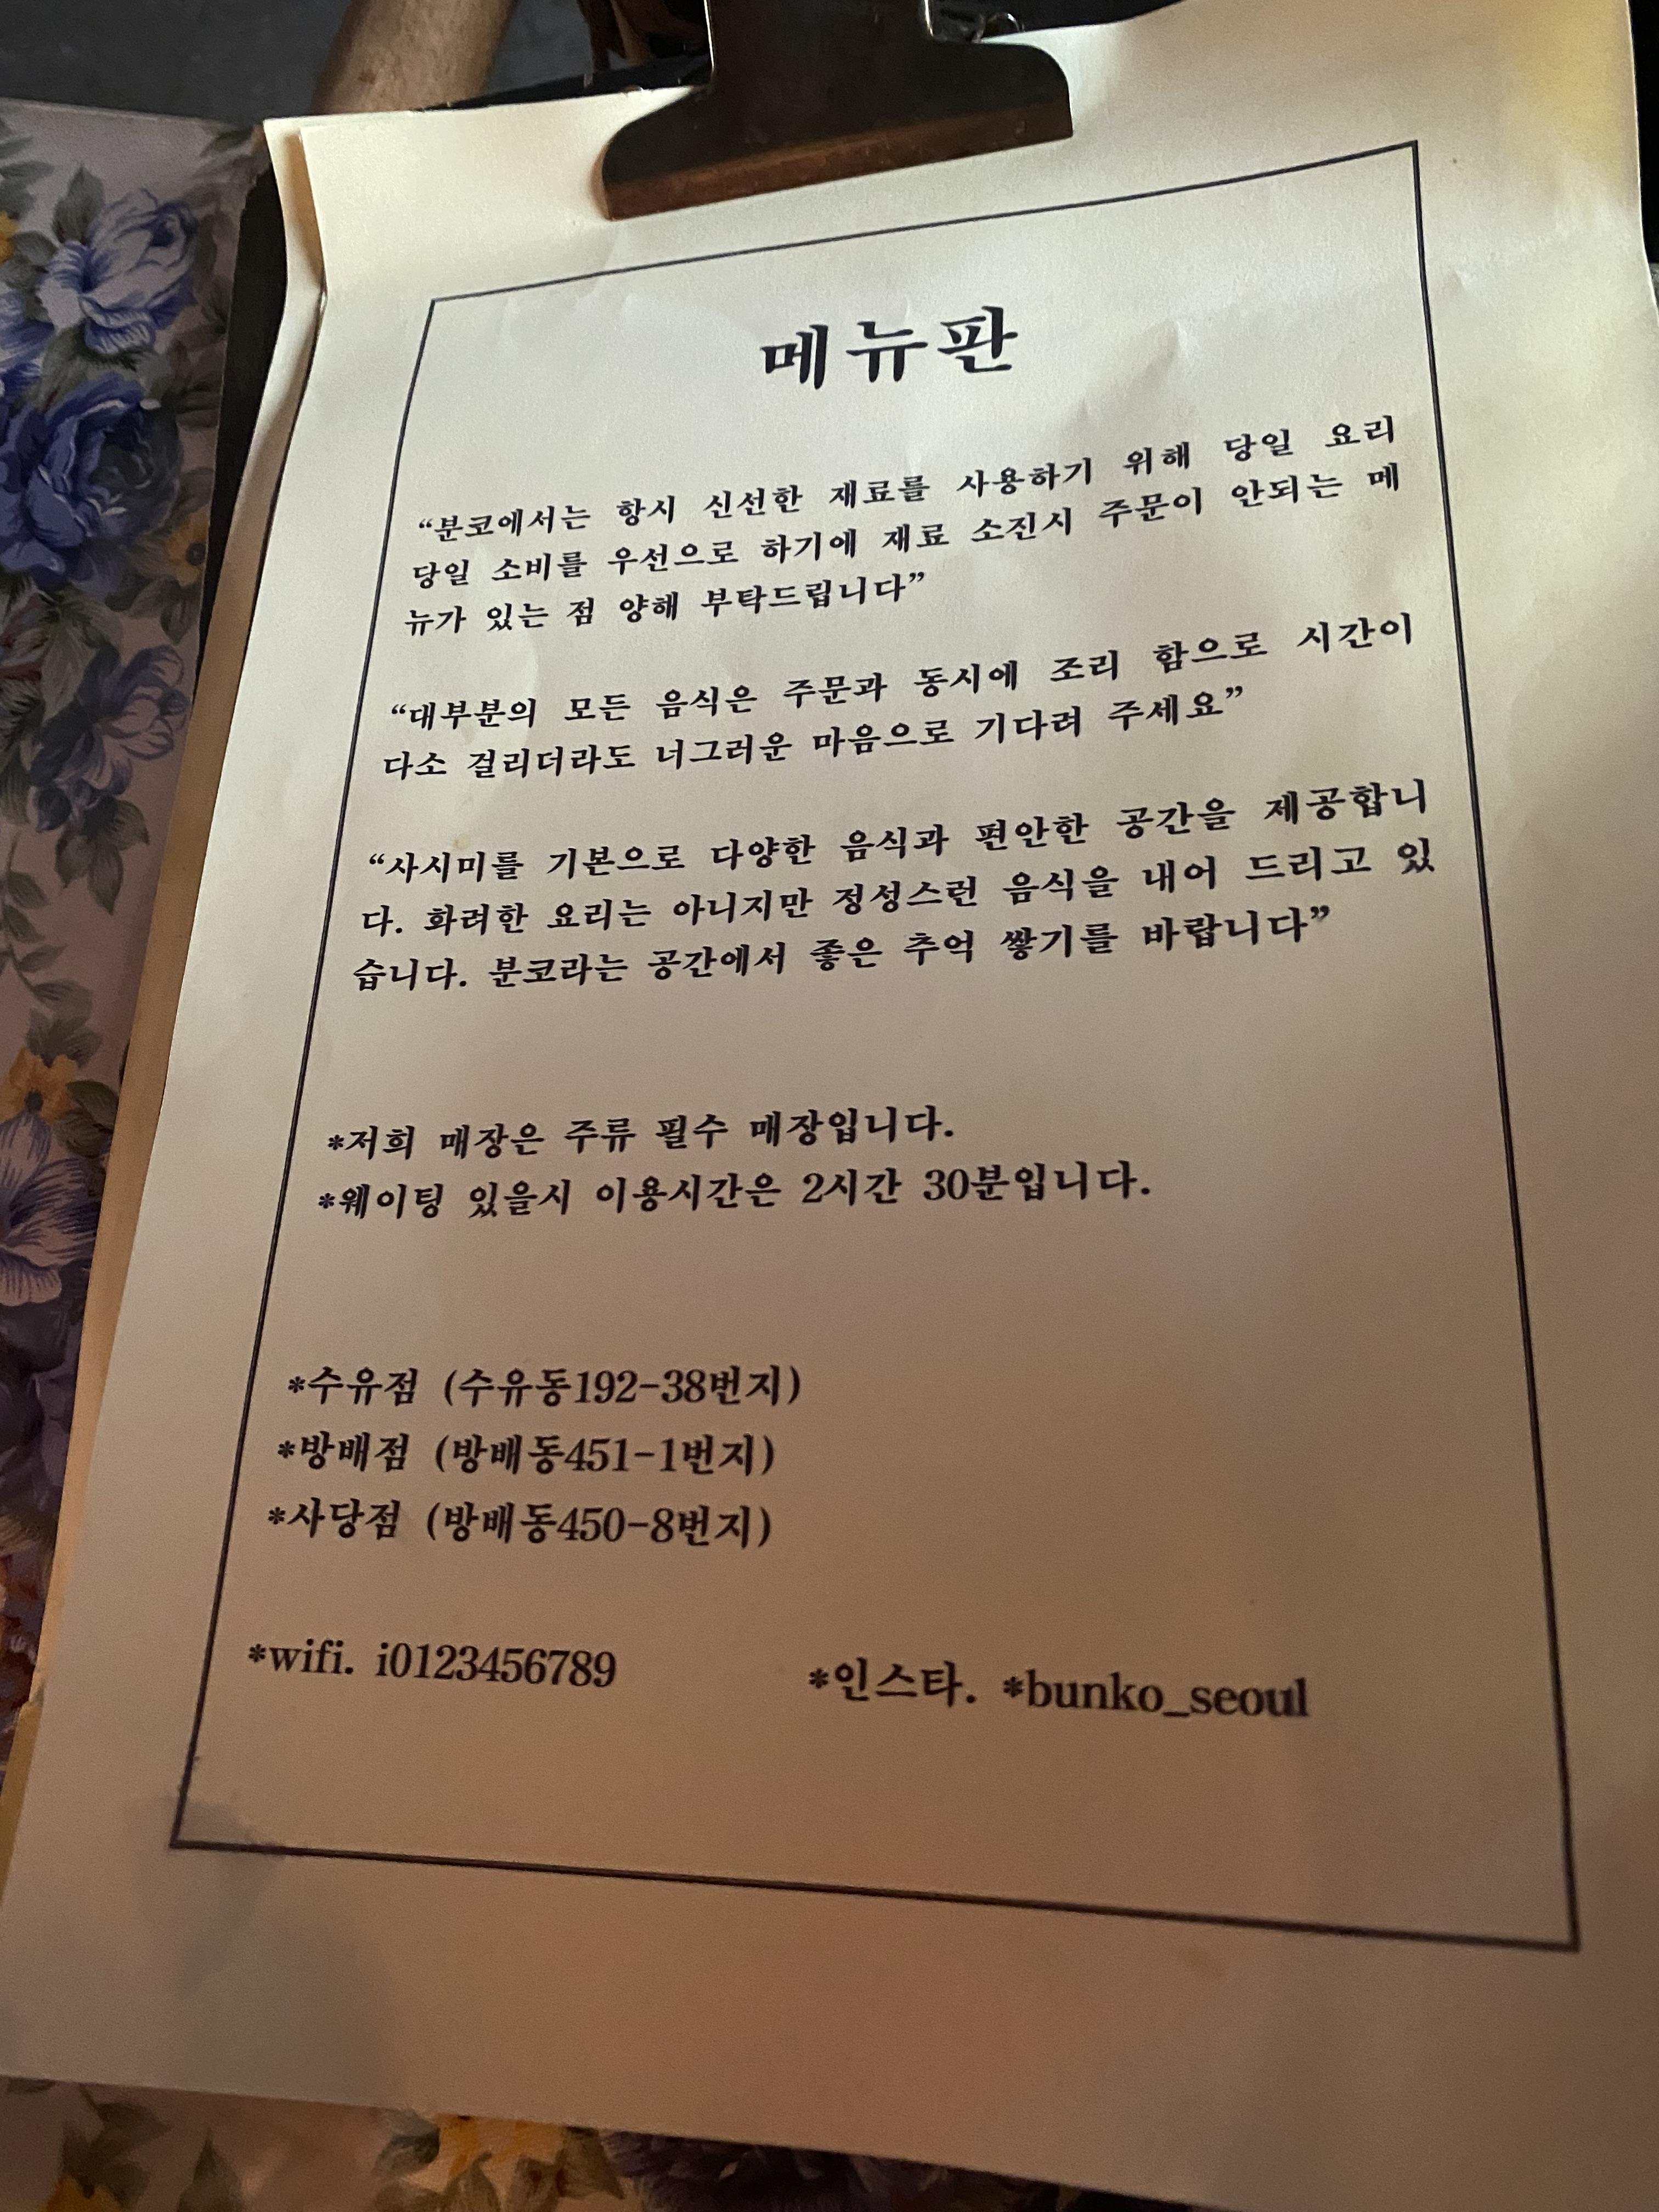 메뉴판
“분코에서는 항시 신선한 재료를 사용하기 위해 당일 요리
당일 소비를 우선으로 하기에 재료 소진시 주문이 안되는 메
뉴가 있는 점 양해 부탁드립니다”
“대부분의 모든 음식은 주문과 동시에 조리 함으로 시간이
다소 걸리더라도 너그러운 마음으로 기다려 주세요”
“사시미를 기본으로 다양한 음식과 편안한 공간을 제공합니
다. 화려한 요리는 아니지만 정성스런 음식을 내어 드리고 있
습니다. 분코라는 공간에서 좋은 추억 쌓기를 바랍니다”
*저희 매장은 주류 필수 매장입니다.
*웨이팅 있을시 이용시간은 2시간 30분입니다.
*수유점 (수유동192-38번지)
*방배점 (방배동451-1번지)
*사당점 (방배동450-8번지)
*wifi. i0123456789 *인스타. *bunko_seoul